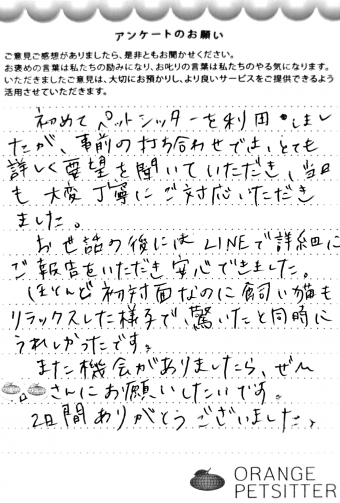 アンケートのお願い
ご意見ご感想がありましたら、是非ともお聞かせください。
お褒めの言葉は私たちの励みになり、お叱りの言葉は私たちのやる気になります。
いただきましたご意見は、大切にお預かりし、より良いサービスをご提供できるよう
活用させていただきます。
初めてペットシッターを利用しまし
たが、事前の打ち合わせでは、とても
詳しく要望を聞いていただき、当日
も大変丁寧にご対応いただき
ました。
お世話の後にはLINEで詳細に
ご報告をいただき安心できました。
ほとんど初対面なのに飼い猫も
リラックスした様子で、驚いたと同時に
うれしかったです。
また機会がありましたら、ぜひ
さんにお願いしたいです。
2日間ありがとうございました。
ORANGE
PETSITTER